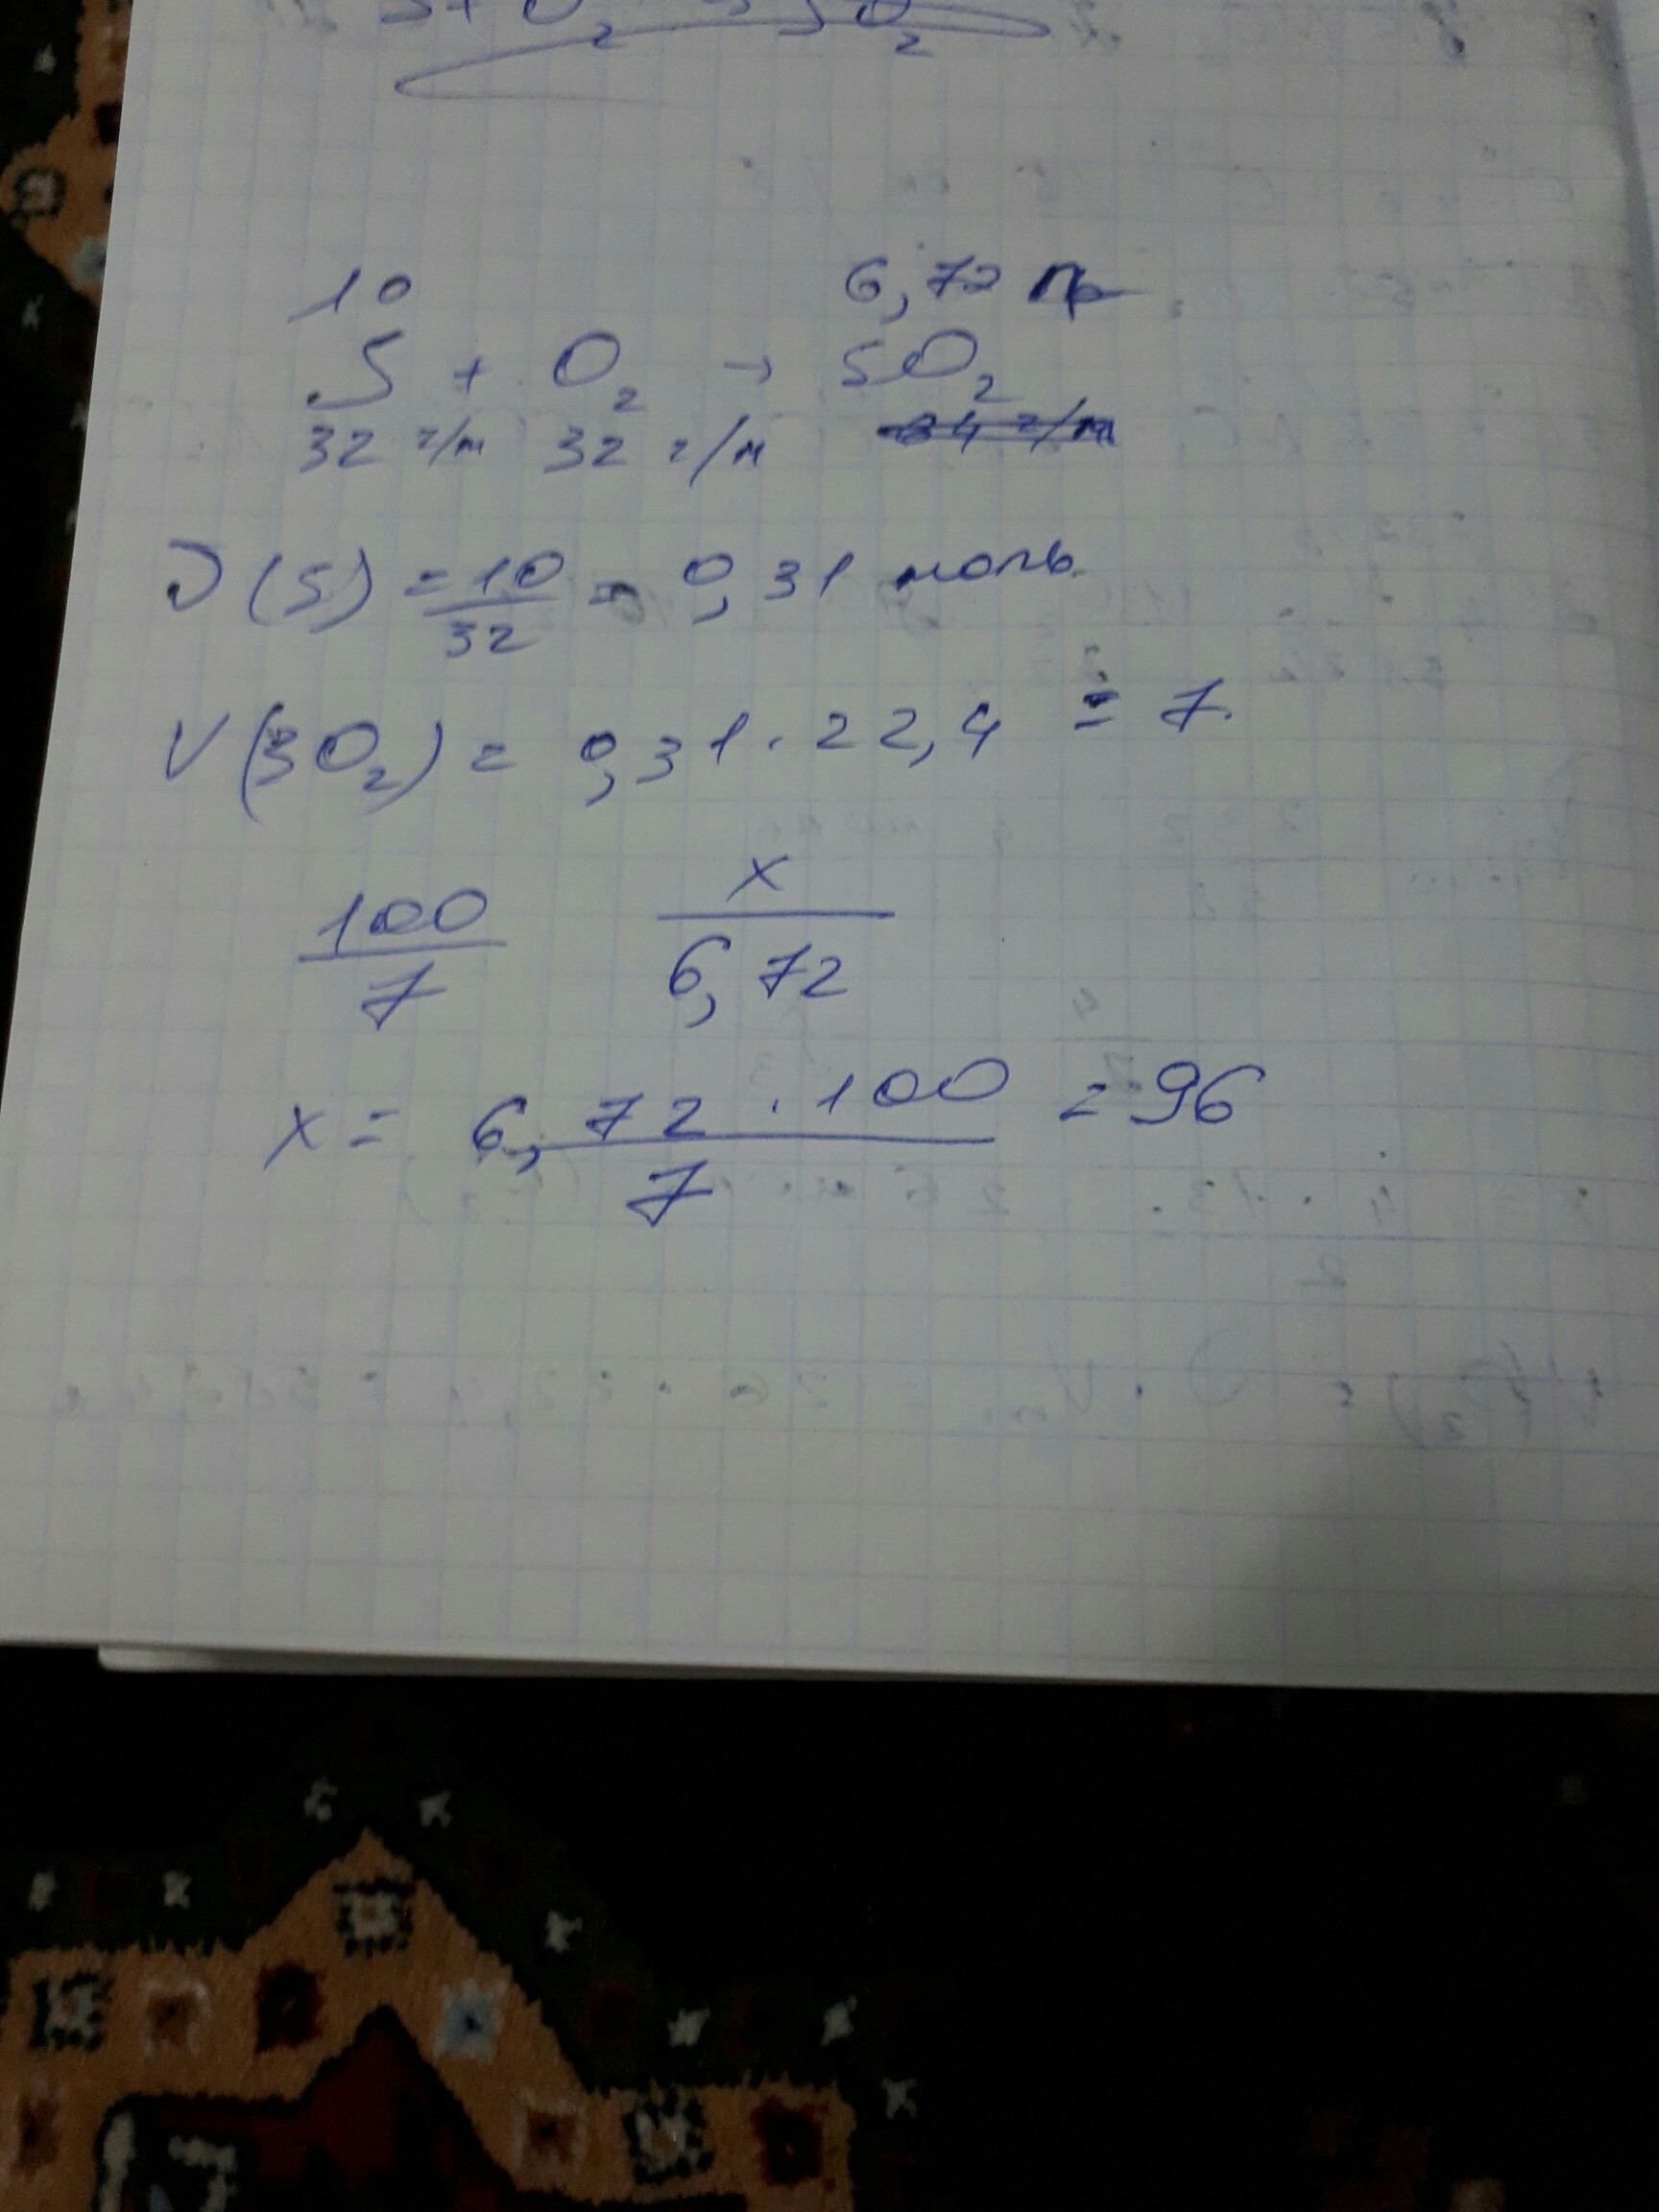 S + O₂ → SO₂
10 6,72 пр
S + O₂ → SO₂
32 г/м 32 г/м 64 г/м
ν(S) = 10/32 = 0,31 моль
V(SO₂) = 0,31 · 22,4 = 7
100/7 x/6,72
x = 6,72 · 100/7 = 96